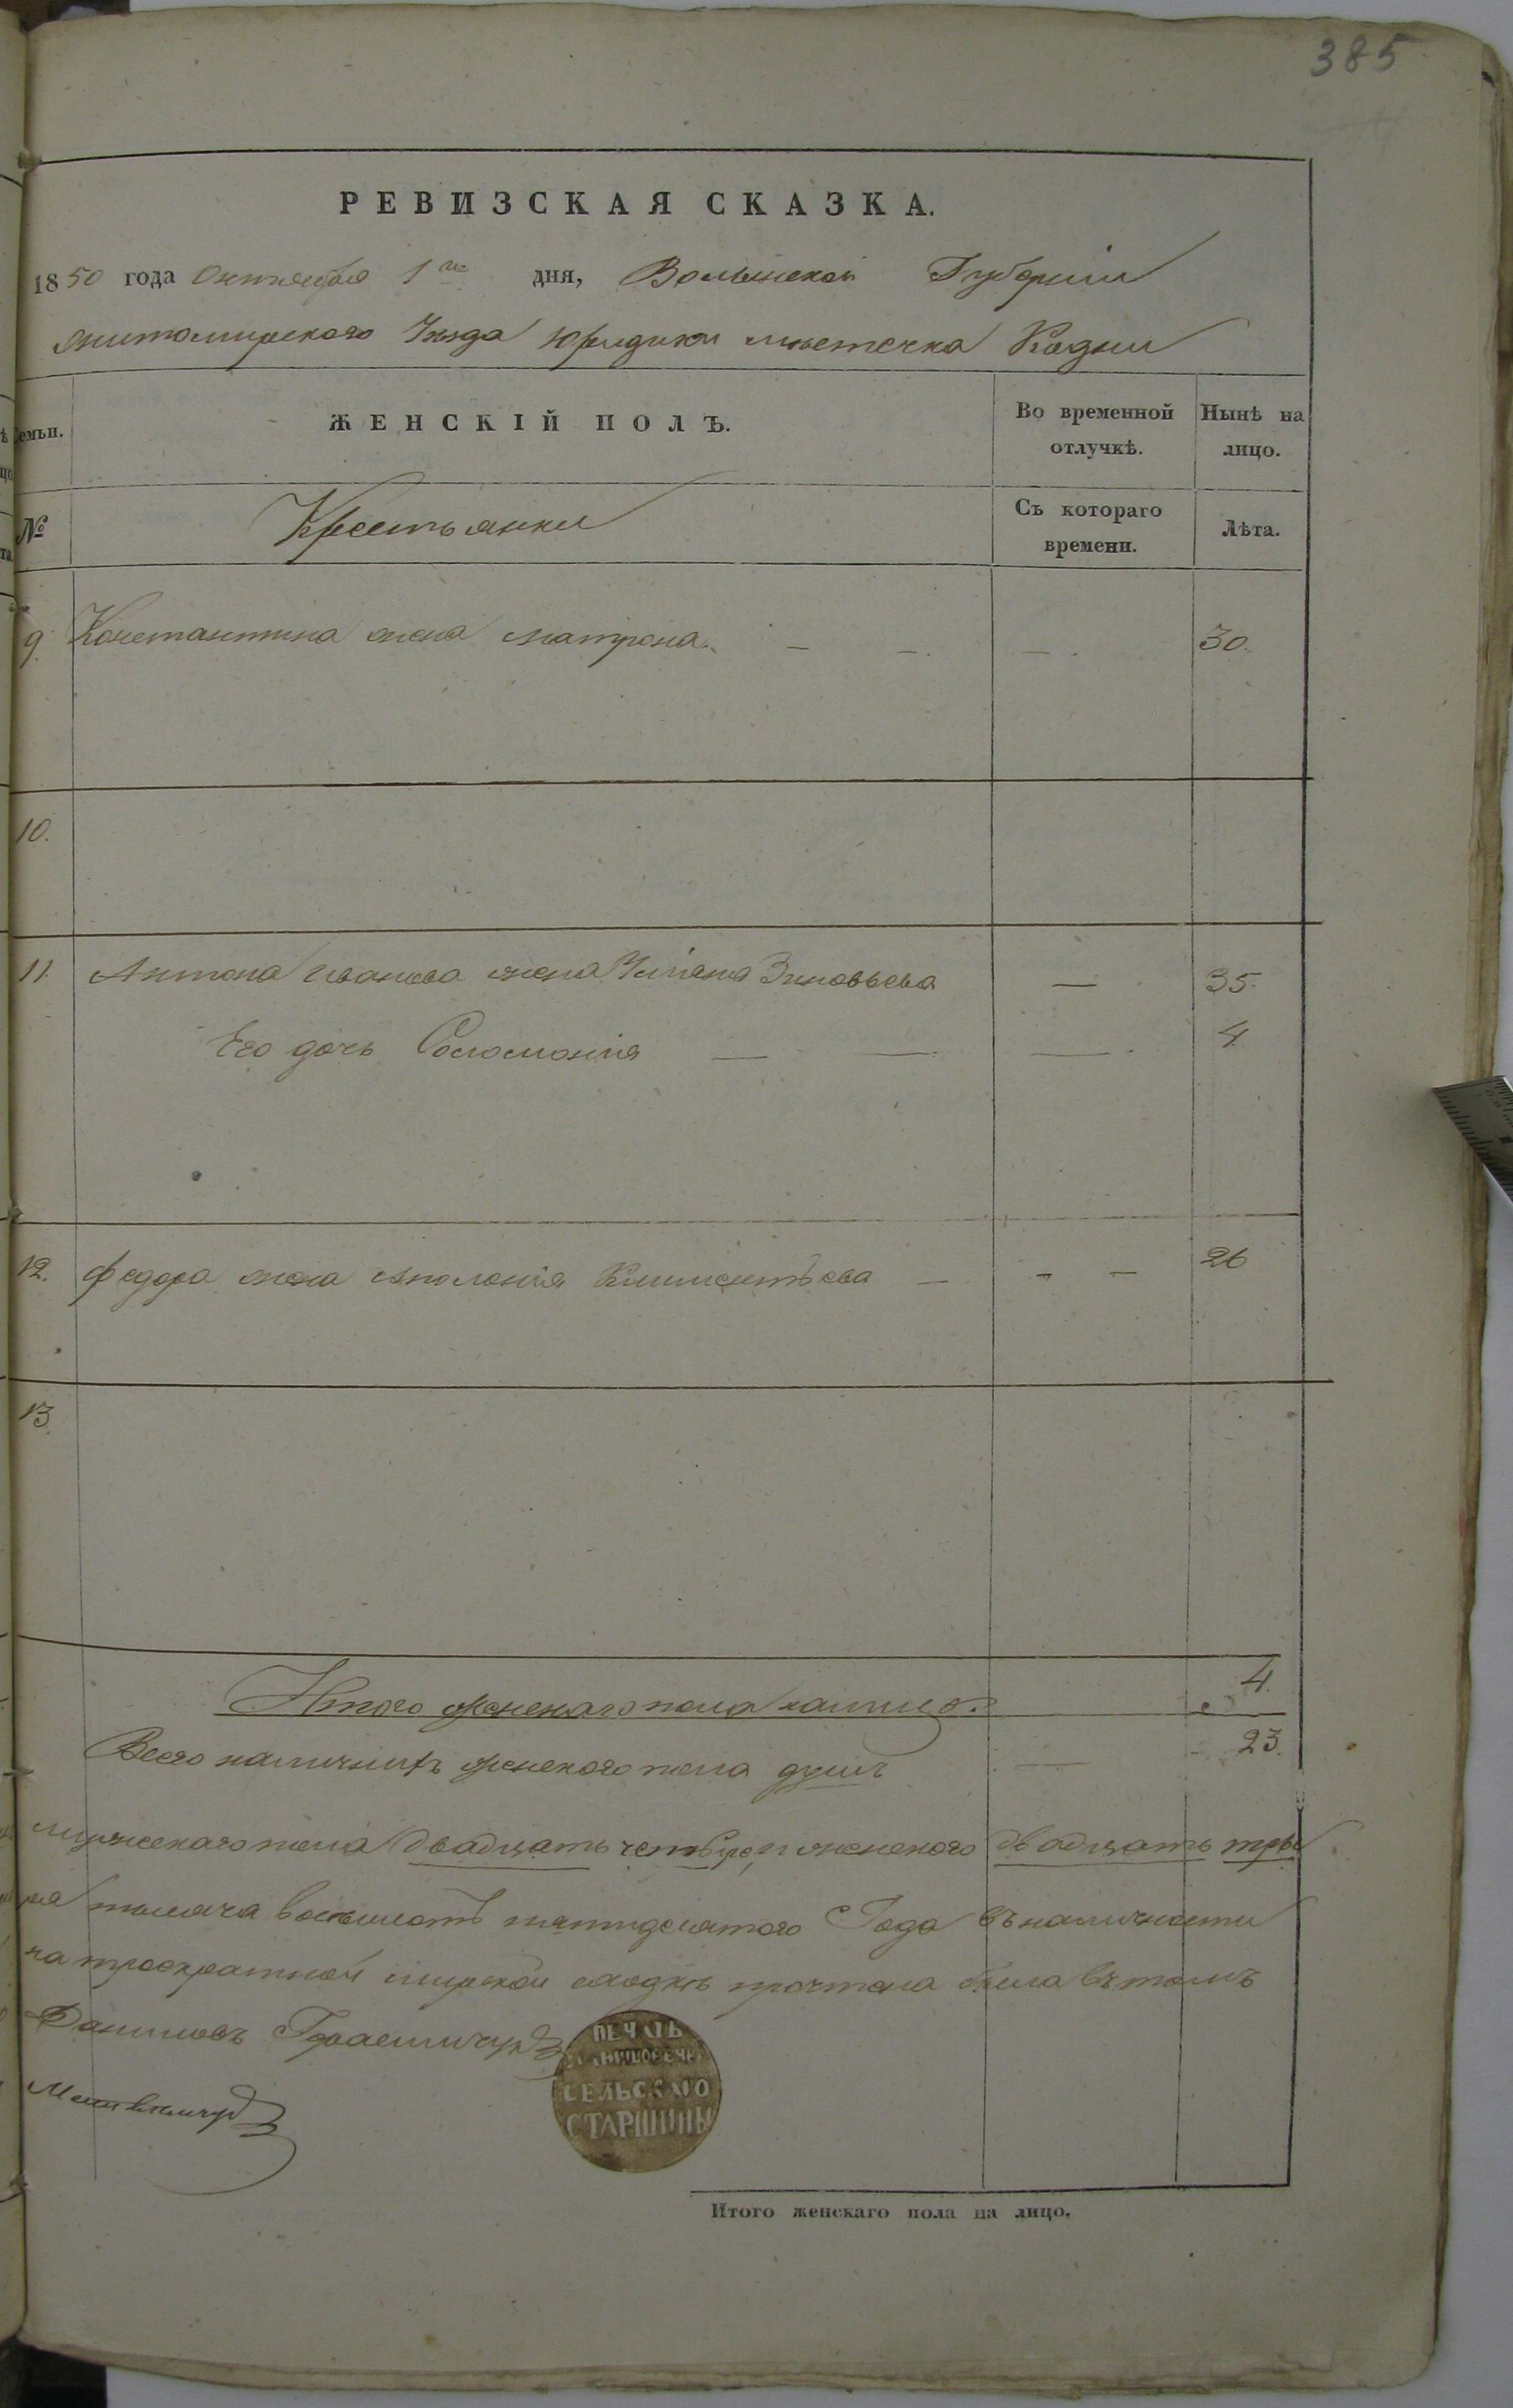 385
РЕВИЗСКАЯ СКАЗКА.
1850 года Октября 1го дня, Волынской Губерніи
Житомирского Уѣзда Юридики мѣстечка Кодни
Семьи. ЖЕНСКІЙ ПОЛЪ. Во временной отлучкѣ. Нынѣ на лицо.
№ Крестьянки Съ котораго времени. Лѣта.
9. Константина жена Матрона. — — — 30.
10.
11. Антона Иванова жена Уліяна Зиновьева — 35.
Его дочь Соломонія — — — 4
12. Федора жена Аполонія Климентьева — — — 26
13.
Итого женскаго пола налицо 4.
Всего наличныхъ женскаго пола душъ — 23.
мужескаго пола двадцать четыре, и женского двадцать три
тысяча восемьсотъ пятидесятого Года въ наличности
на троекратной мирской сходкѣ прочтена была въ томъ
Даниловъ Герасимчукъ
ПЕЧАТЬ
СЕЛЬСКАГО
СТАРШИНЫ
Итого женскаго пола на лицо.